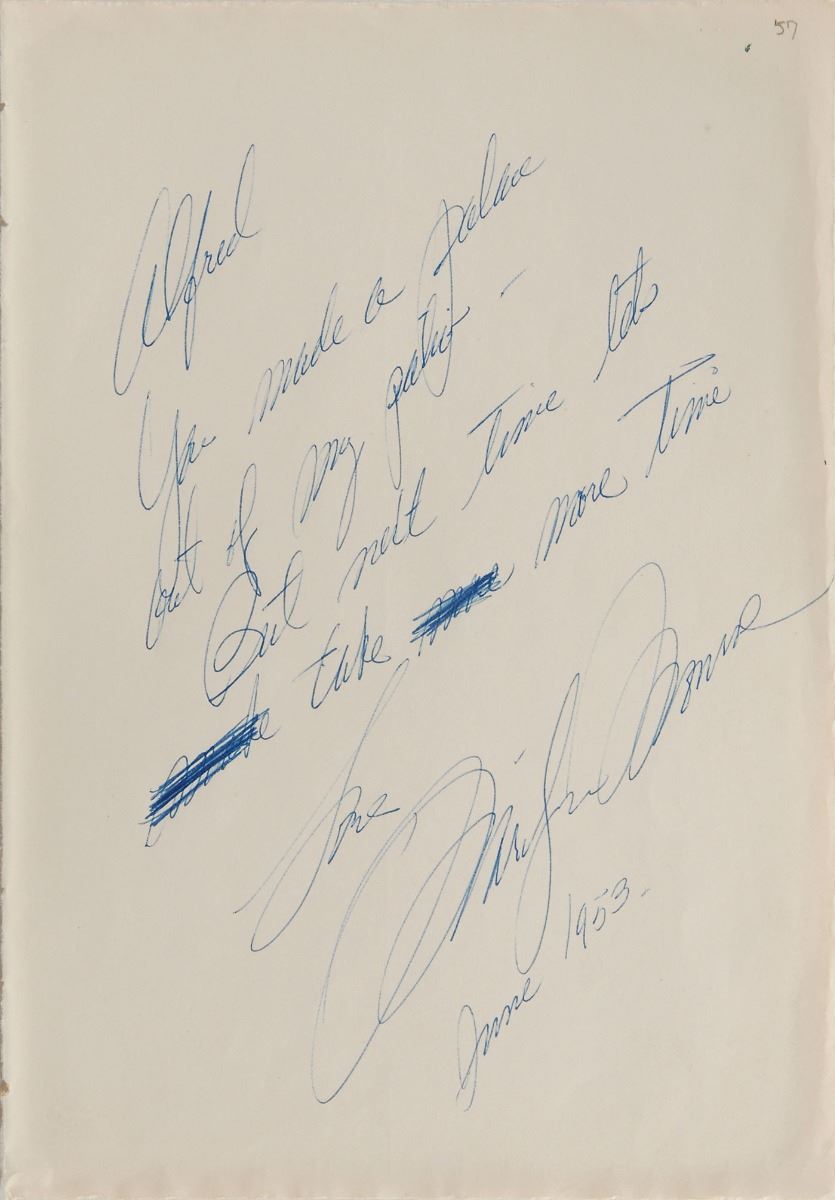 57
Alfred
You made a palace
out of my patio -
But next time lets
take more time
Love
Marilyn Monroe
June 1953.